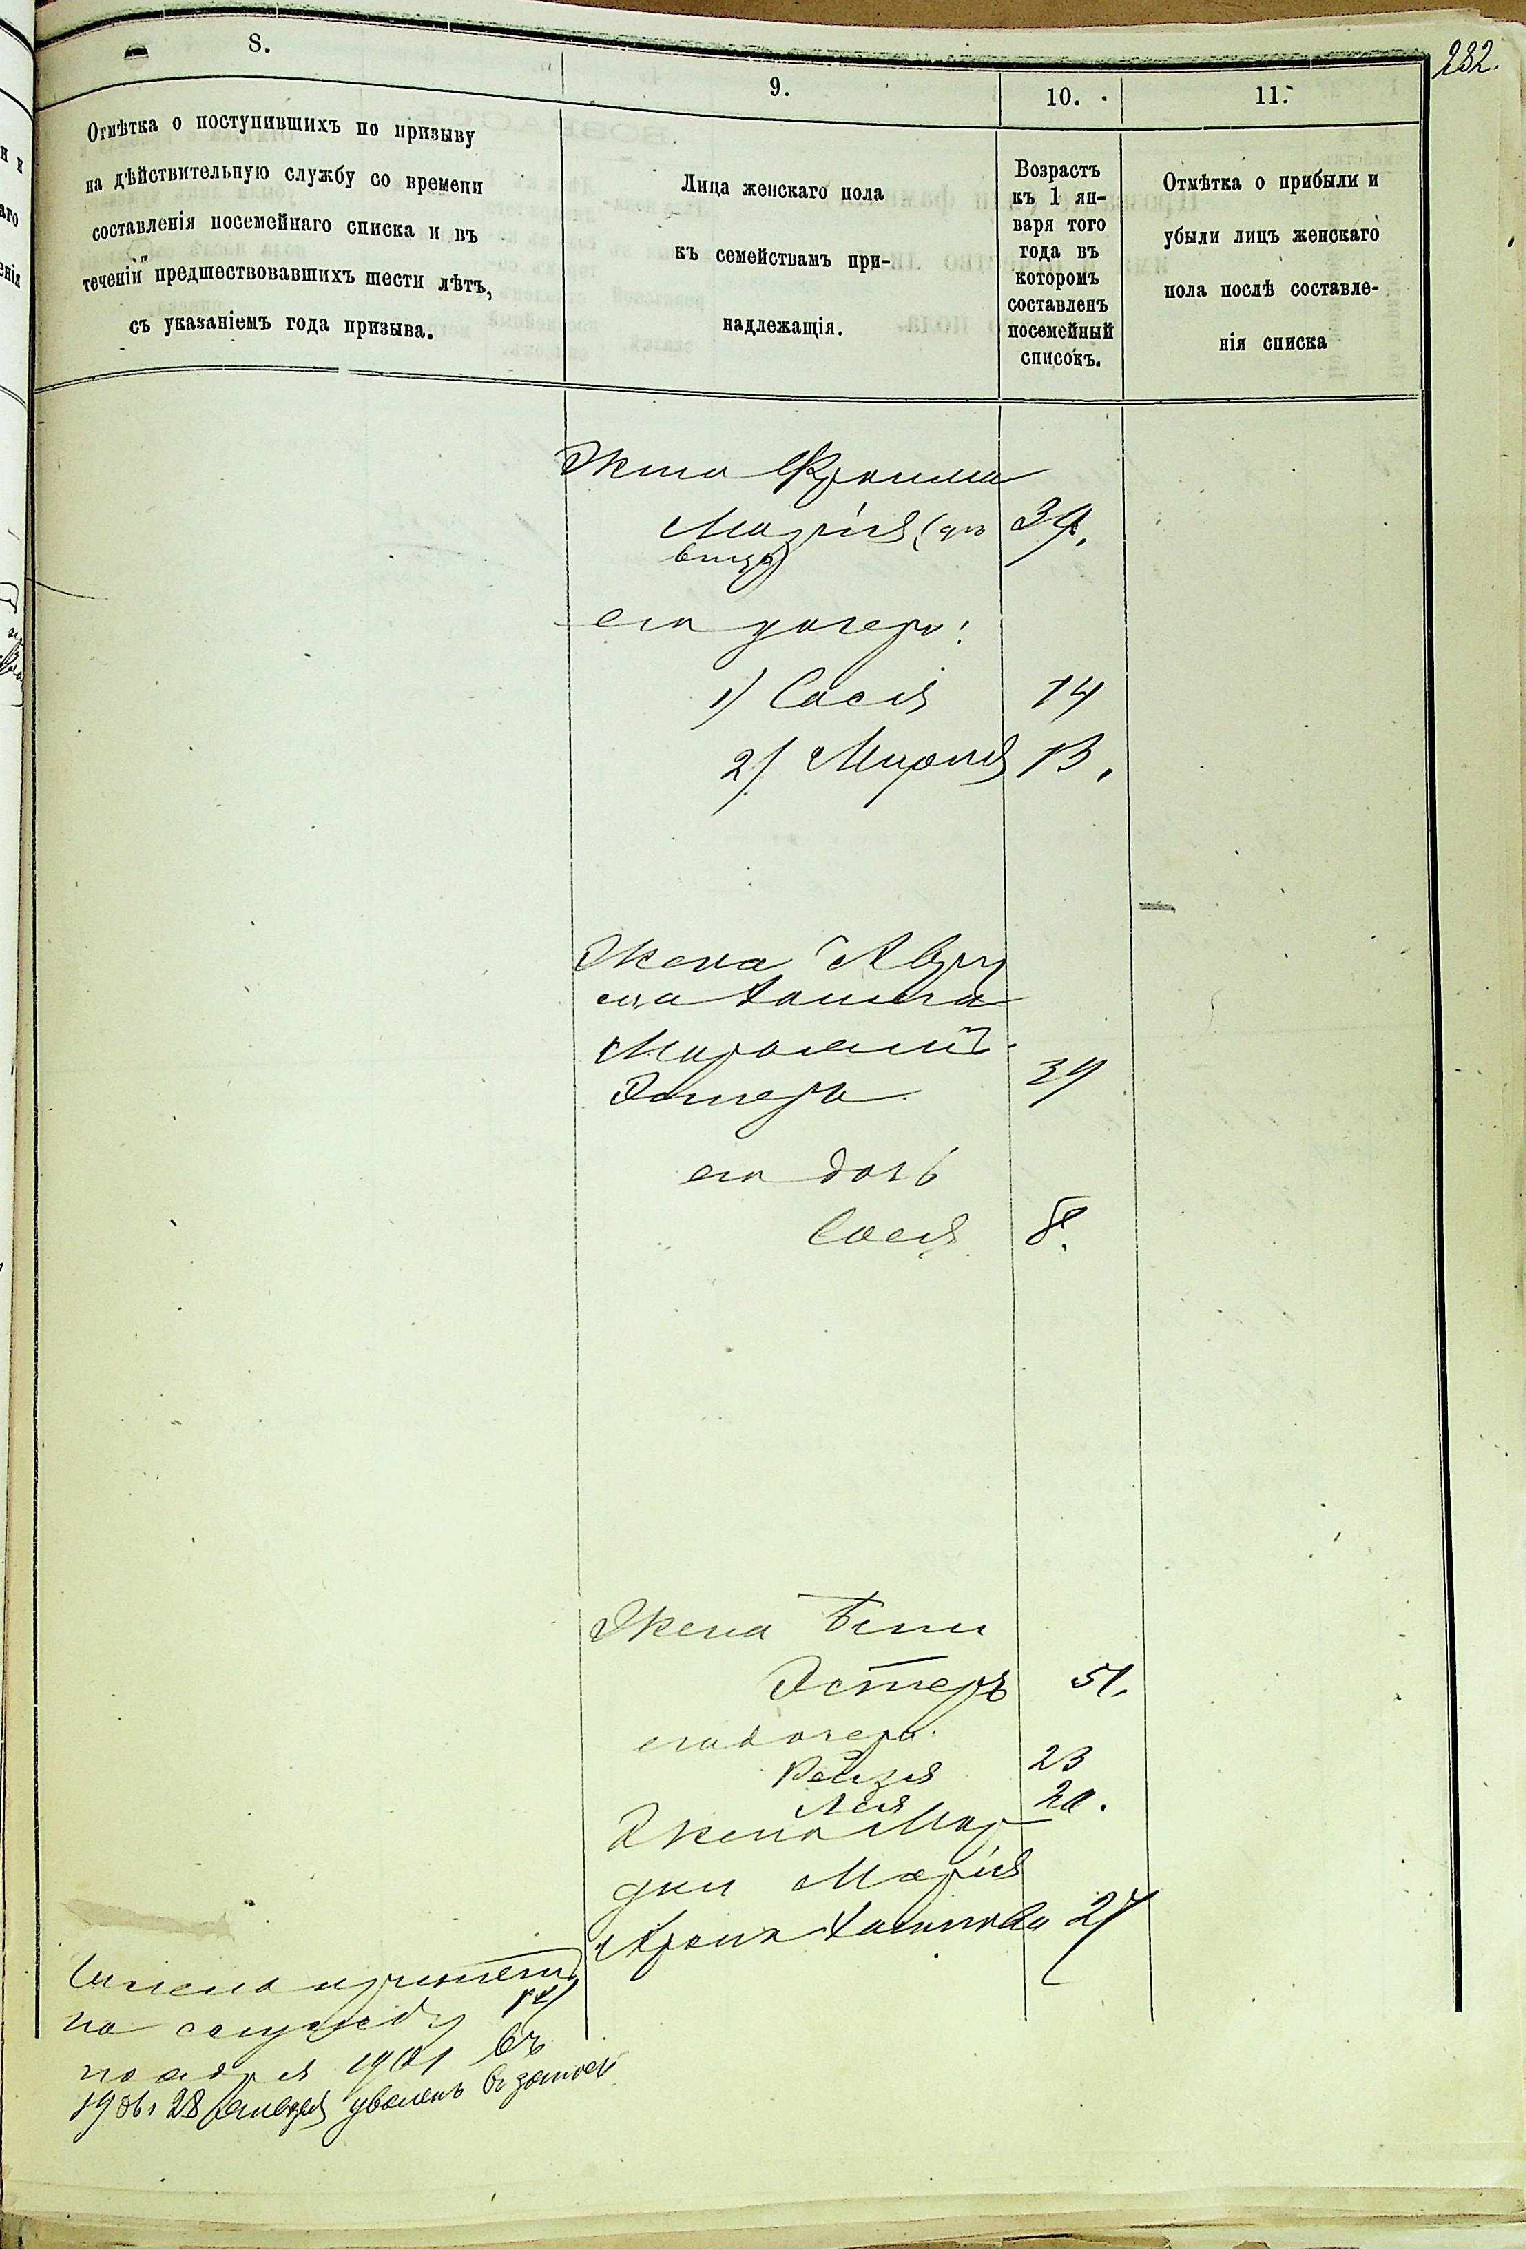 232.
8.
9.
10.
11.
Отмѣтка о поступившихъ по призыву
на дѣйствительную службу со времени
составленія посемейнаго списка и въ
теченіи предшествовавшихъ шести лѣтъ,
съ указаніемъ года призыва.
Лица женскаго пола
къ семействамъ при-
надлежащія.
Возрастъ
къ 1 ян-
варя того
года въ
которомъ
составленъ
посемейный
списокъ.
Отмѣтка о прибыли и
убыли лицъ женскаго
пола послѣ составле-
нія списка
Жена
39.
его дочери:
1) Сося 14
2) 13.
Жена
Эстера 39
его дочь
Сося 8.
Жена
Эстеръ 51.
его дочери
Рейзя 23
Лея 20.
Жена Мор
дки Марія
27
на службу
ноября 1901 въ
28 уволенъ въ запасъ